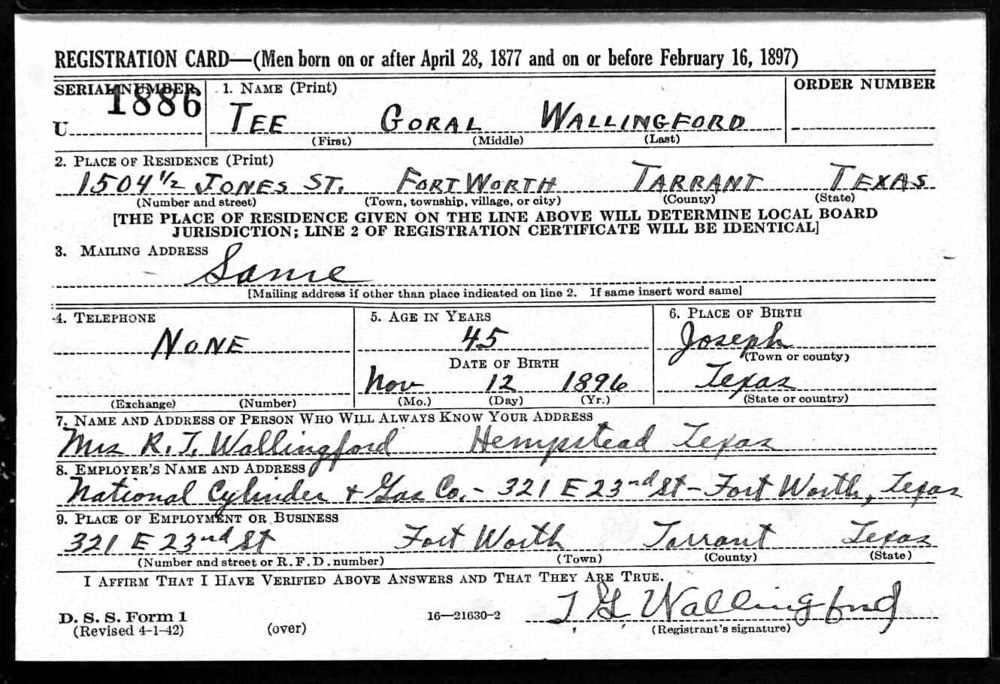 REGISTRATION CARD—(Men born on or after April 28, 1877 and on or before February 16, 1897)
SERIAL NUMBER 1. NAME (Print) ORDER NUMBER
1886
U TEE GORAL WALLINGFORD
(First) (Middle) (Last)
2. PLACE OF RESIDENCE (Print)
1504 1/2 JONES ST. FORT WORTH TARRANT TEXAS
(Number and street) (Town, township, village, or city) (County) (State)
[THE PLACE OF RESIDENCE GIVEN ON THE LINE ABOVE WILL DETERMINE LOCAL BOARD
JURISDICTION; LINE 2 OF REGISTRATION CERTIFICATE WILL BE IDENTICAL]
3. MAILING ADDRESS
Same
[Mailing address if other than place indicated on line 2. If same insert word same]
4. TELEPHONE 5. AGE IN YEARS 6. PLACE OF BIRTH
NONE 45 Joseph
(Town or county)
DATE OF BIRTH
Nov 12 1896 Texas
(Exchange) (Number) (Mo.) (Day) (Yr.) (State or country)
7. NAME AND ADDRESS OF PERSON WHO WILL ALWAYS KNOW YOUR ADDRESS
Mrs R. T. Wallingford Hempstead Texas
8. EMPLOYER'S NAME AND ADDRESS
National Cylinder + Gas Co. - 321 E 23rd St - Fort Worth, Texas
9. PLACE OF EMPLOYMENT OR BUSINESS
321 E 23rd St Fort Worth Tarrant Texas
(Number and street or R. F. D. number) (Town) (County) (State)
I AFFIRM THAT I HAVE VERIFIED ABOVE ANSWERS AND THAT THEY ARE TRUE.
D. S. S. Form 1 16—21630-2 T. G. Wallingford
(Revised 4-1-42) (over) (Registrant's signature)